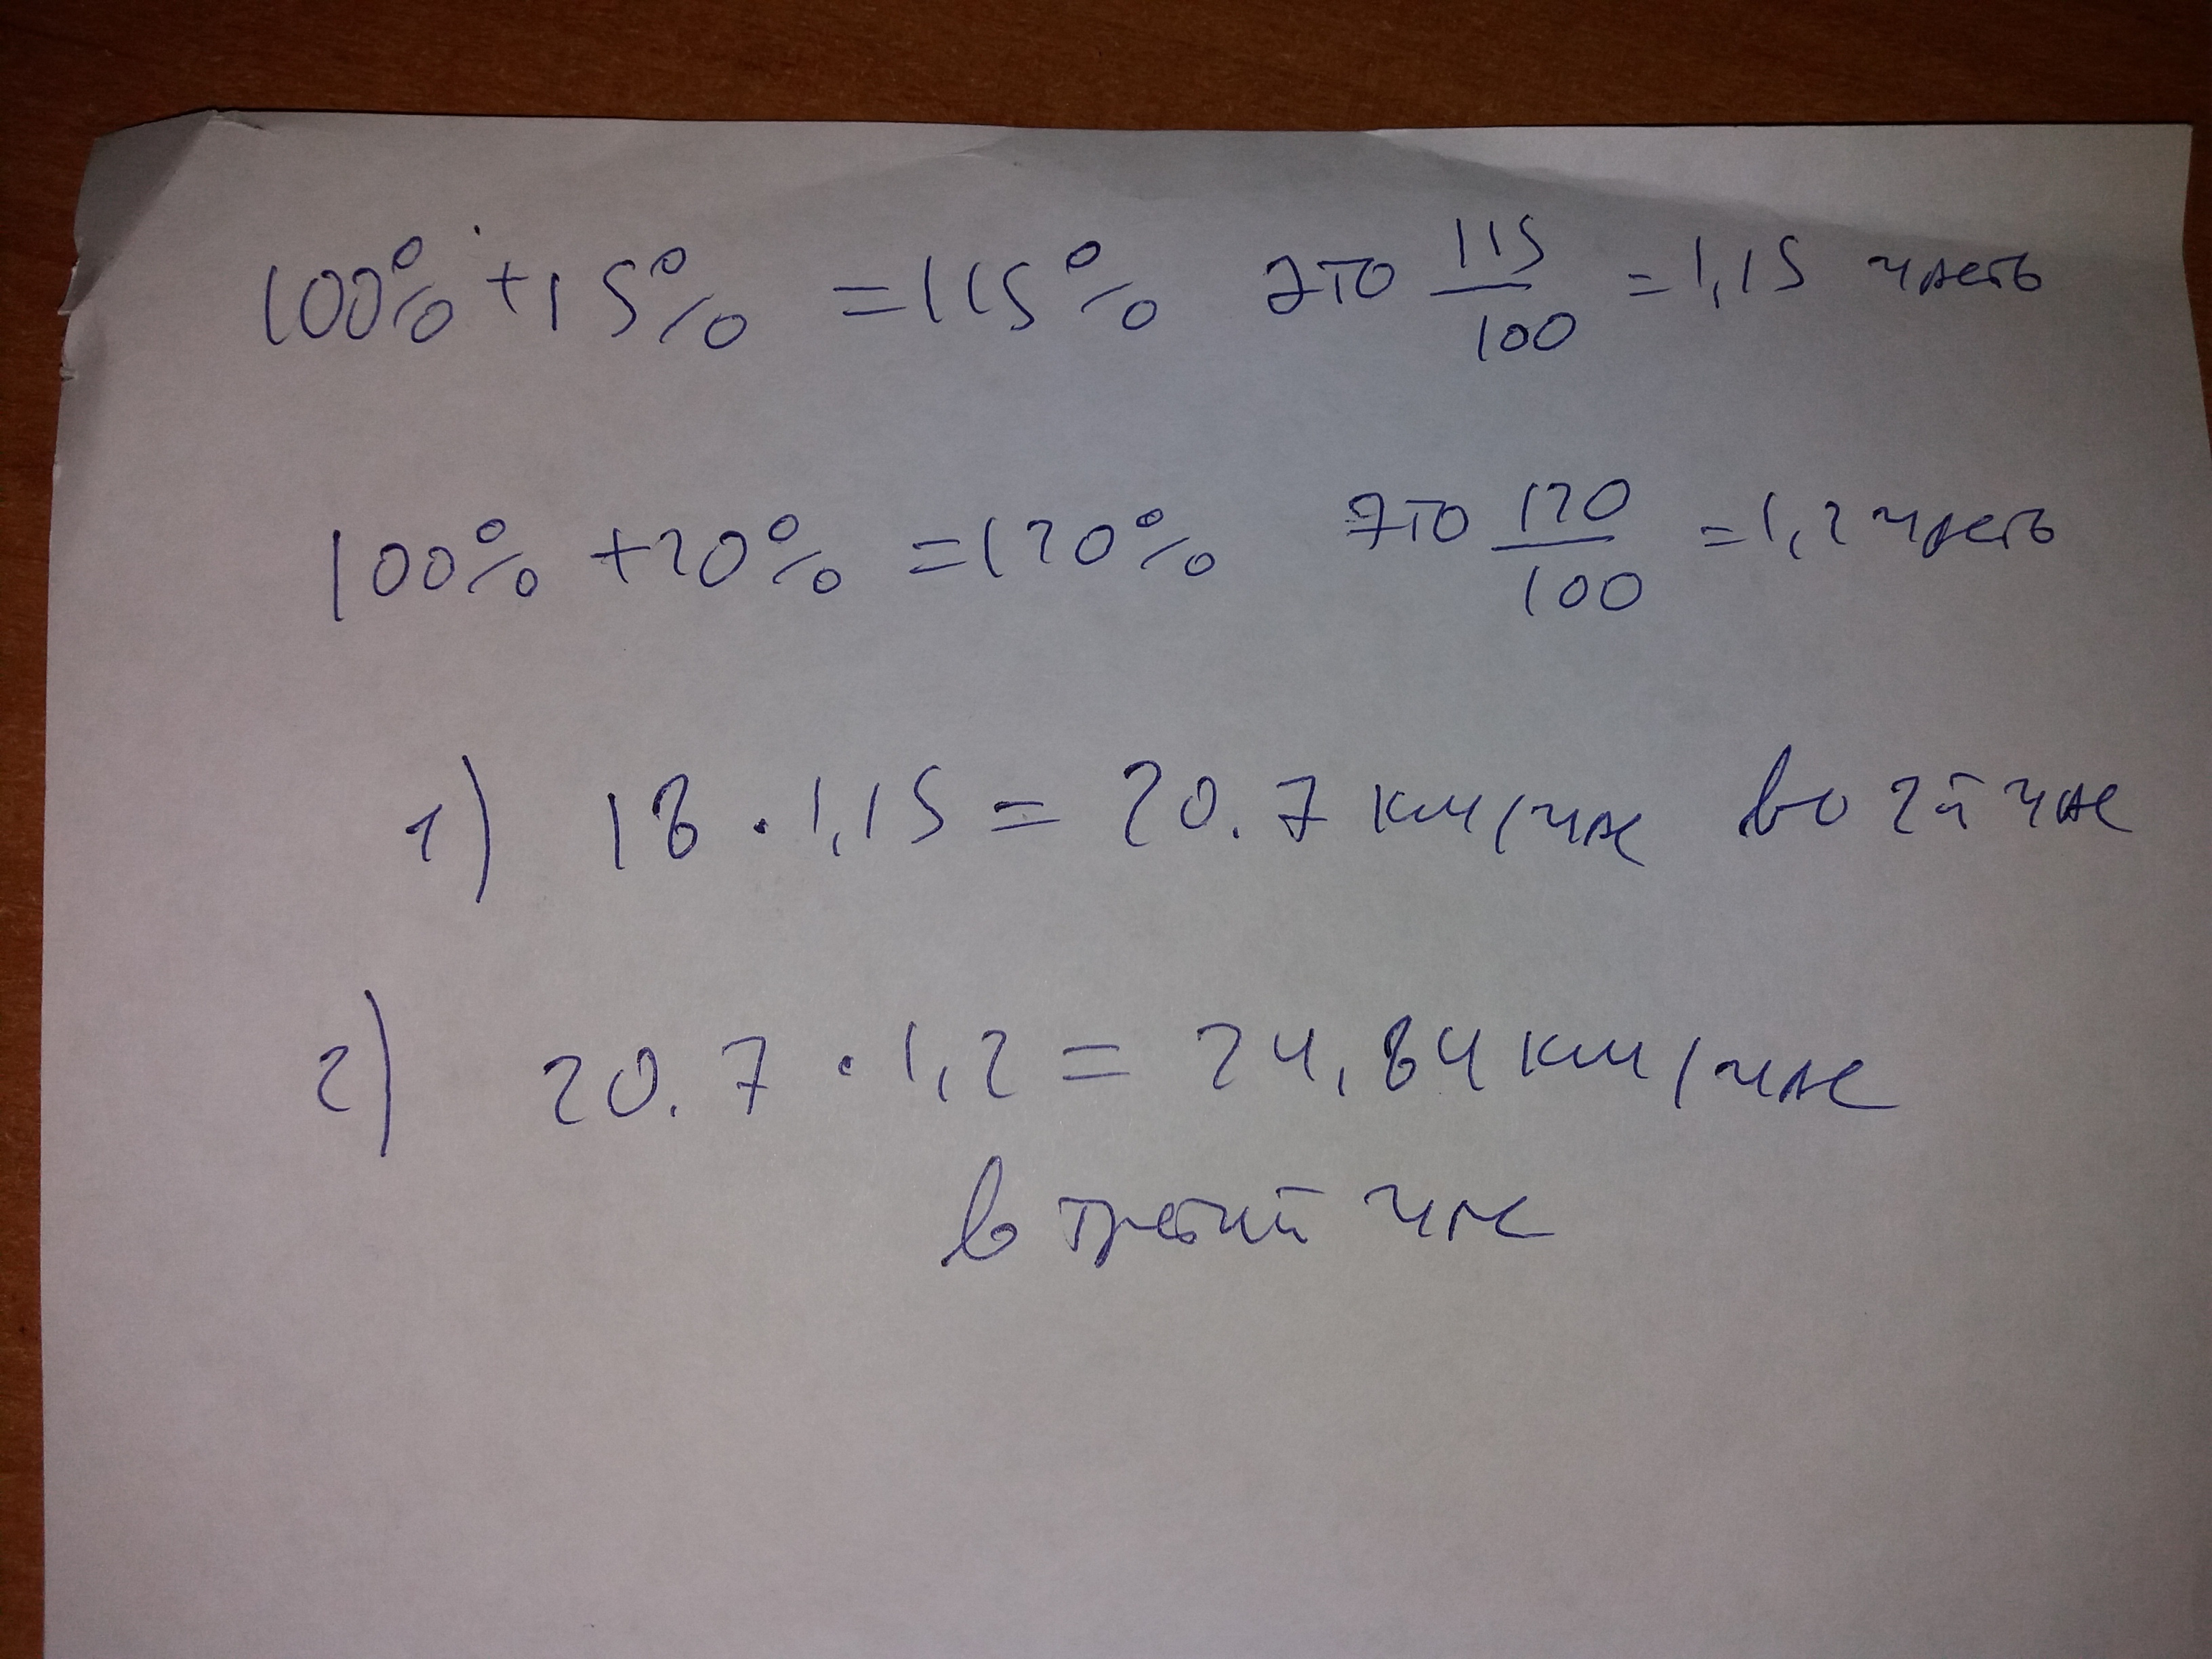 100% + 15% = 115% это 115/100 = 1,15 часть
100% + 20% = 120% это 120/100 = 1,2 часть
1) 18 · 1,15 = 20.7 км/час во 2й час
2) 20.7 · 1,2 = 24,84 км/час
в третий час